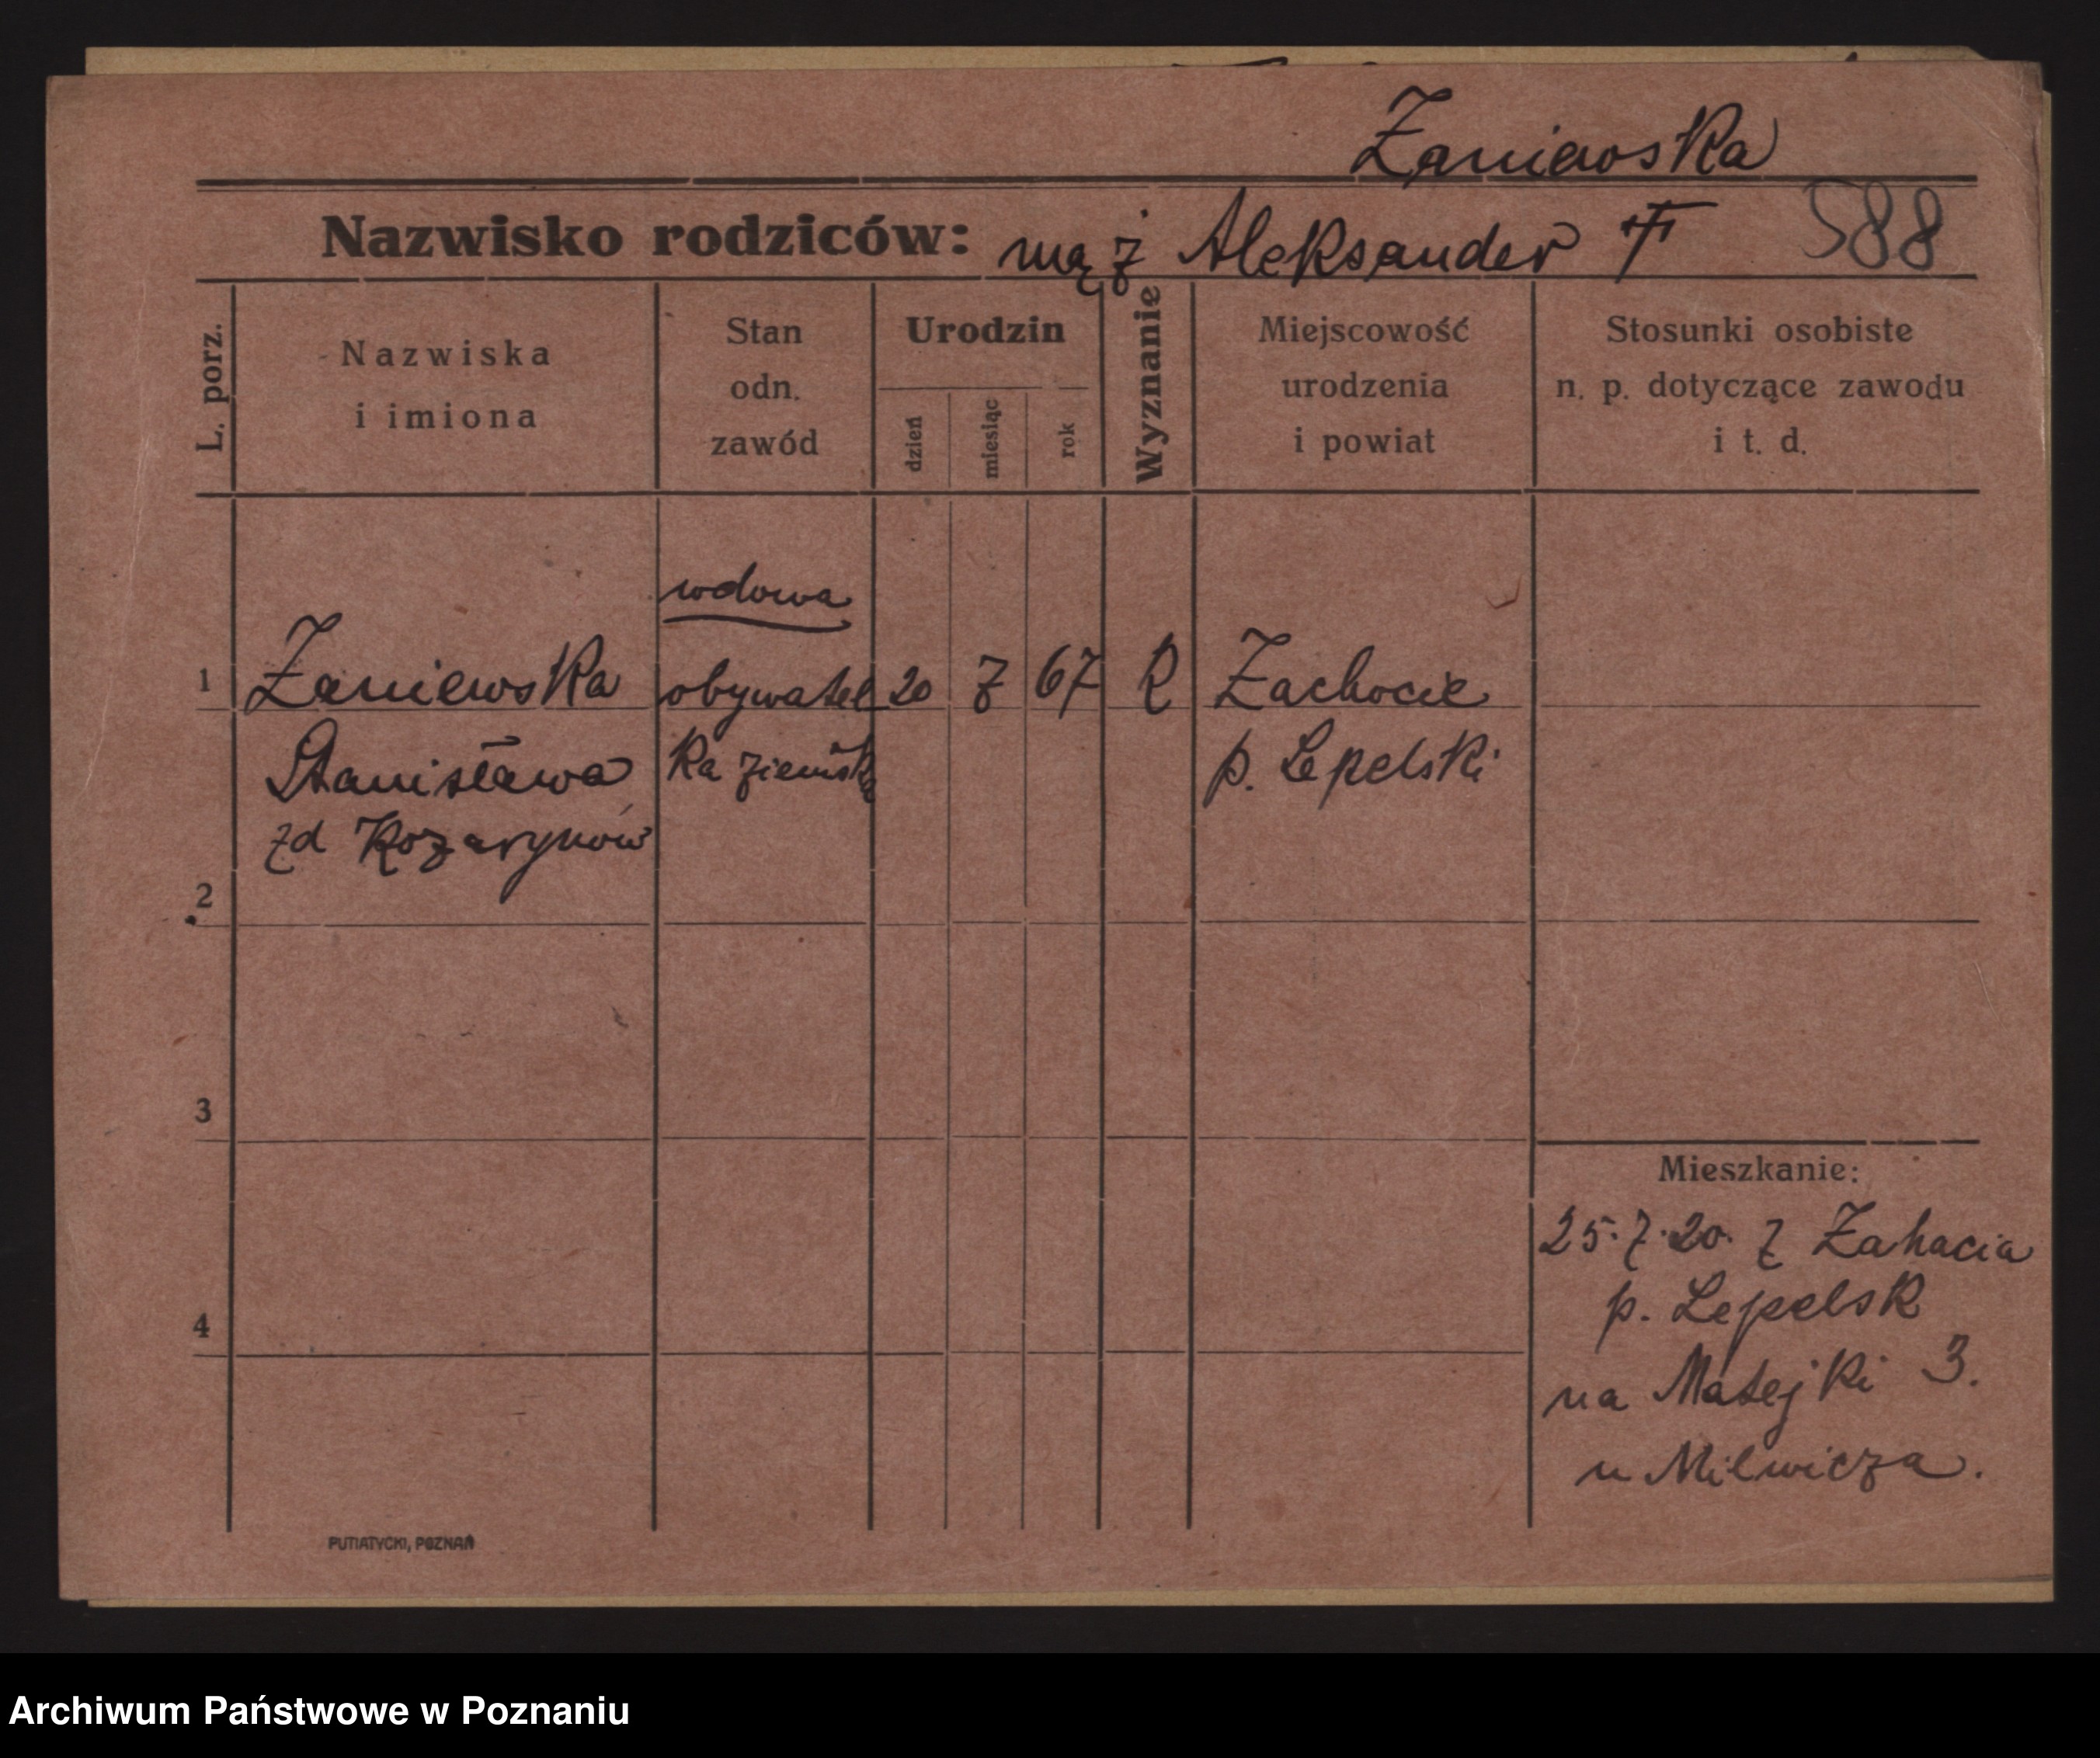 Żaniewska
Nazwisko rodziców: mąż Aleksander † 588
L. porz.
Nazwiska
i imiona
Stan
odn.
zawód
Urodzin
dzień
miesiąc
rok
Wyznanie
Miejscowość
urodzenia
i powiat
Stosunki osobiste
n. p. dotyczące zawodu
i t. d.
wdowa
1 Żaniewska obywatel 20 7 67 R Zachocie
Stanisława ka ziemska p. Lepelski
zd Kozarynów
2
3
Mieszkanie:
25.7.20. z Zahacia
p. Lepelsk
4
na Matejki 3.
u Milwicza.
PUTIATYCKI, POZNAŃ
Archiwum Państwowe w Poznaniu